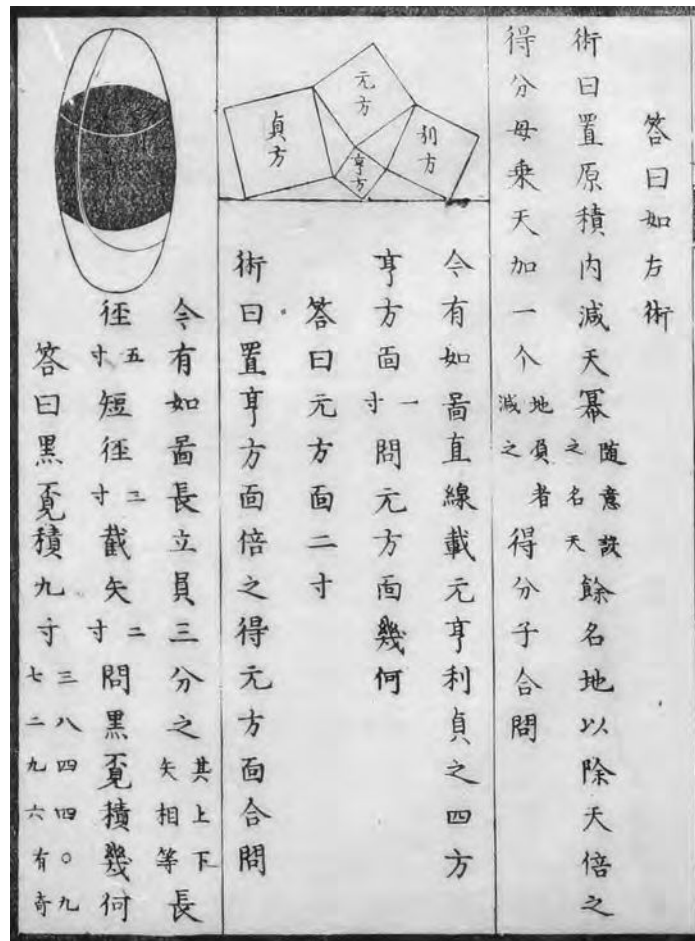 答曰如左術
術曰置原積内減天冪随意設之名天餘名地以除天倍之
得分母乗天加一个地負者減之得分子合問
元方
利方
亨方
貞方
今有如啚直線載元亨利貞之四方
亨方面一寸問元方面幾何
答曰元方面二寸
術曰置亨方面倍之得元方面合問
今有如啚長立員三分之其上下矢相等長
径五寸短径三寸截矢二寸問黒覔積幾何
答曰黒覔積九寸三八四四〇九七二九六有奇